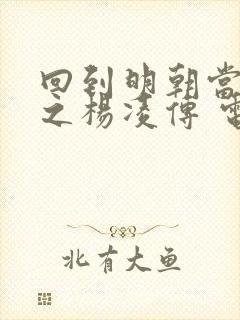 回到明朝当
之杨凌传
北有大鱼